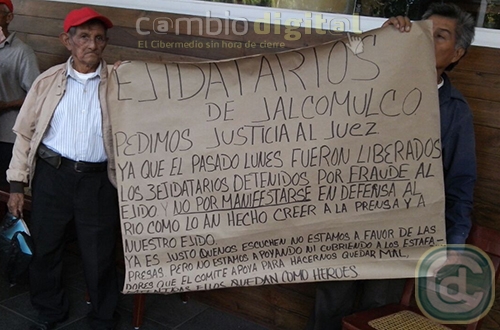 cambiodigital
El Cibermedio sin hora de cierre
EJIDATARIOS
DE JALCOMULCO
PEDIMOS JUSTICIA AL JUEZ
YA QUE EL PASADO LUNES FUERON LIBERADOS
LOS 3 EJIDATARIOS DETENIDOS POR FRAUDE AL
EJIDO Y NO POR MANIFESTARSE EN DEFENSA AL
RIO COMO LO AN HECHO CREER A LA PRENSA Y A
NUESTRO EJIDO.
YA ES JUSTO QUENOS ESCUCHEN NO ESTAMOS A FAVOR DE LAS
PRESAS PERO NO ESTAMOS APOYANDO NI CUBRIENDO A LOS ESTAFA-
DORES QUE EL COMITE APOYA PARA HACERNOS QUEDAR MAL,
ELLOS QUEDAN COMO HEROES
cd